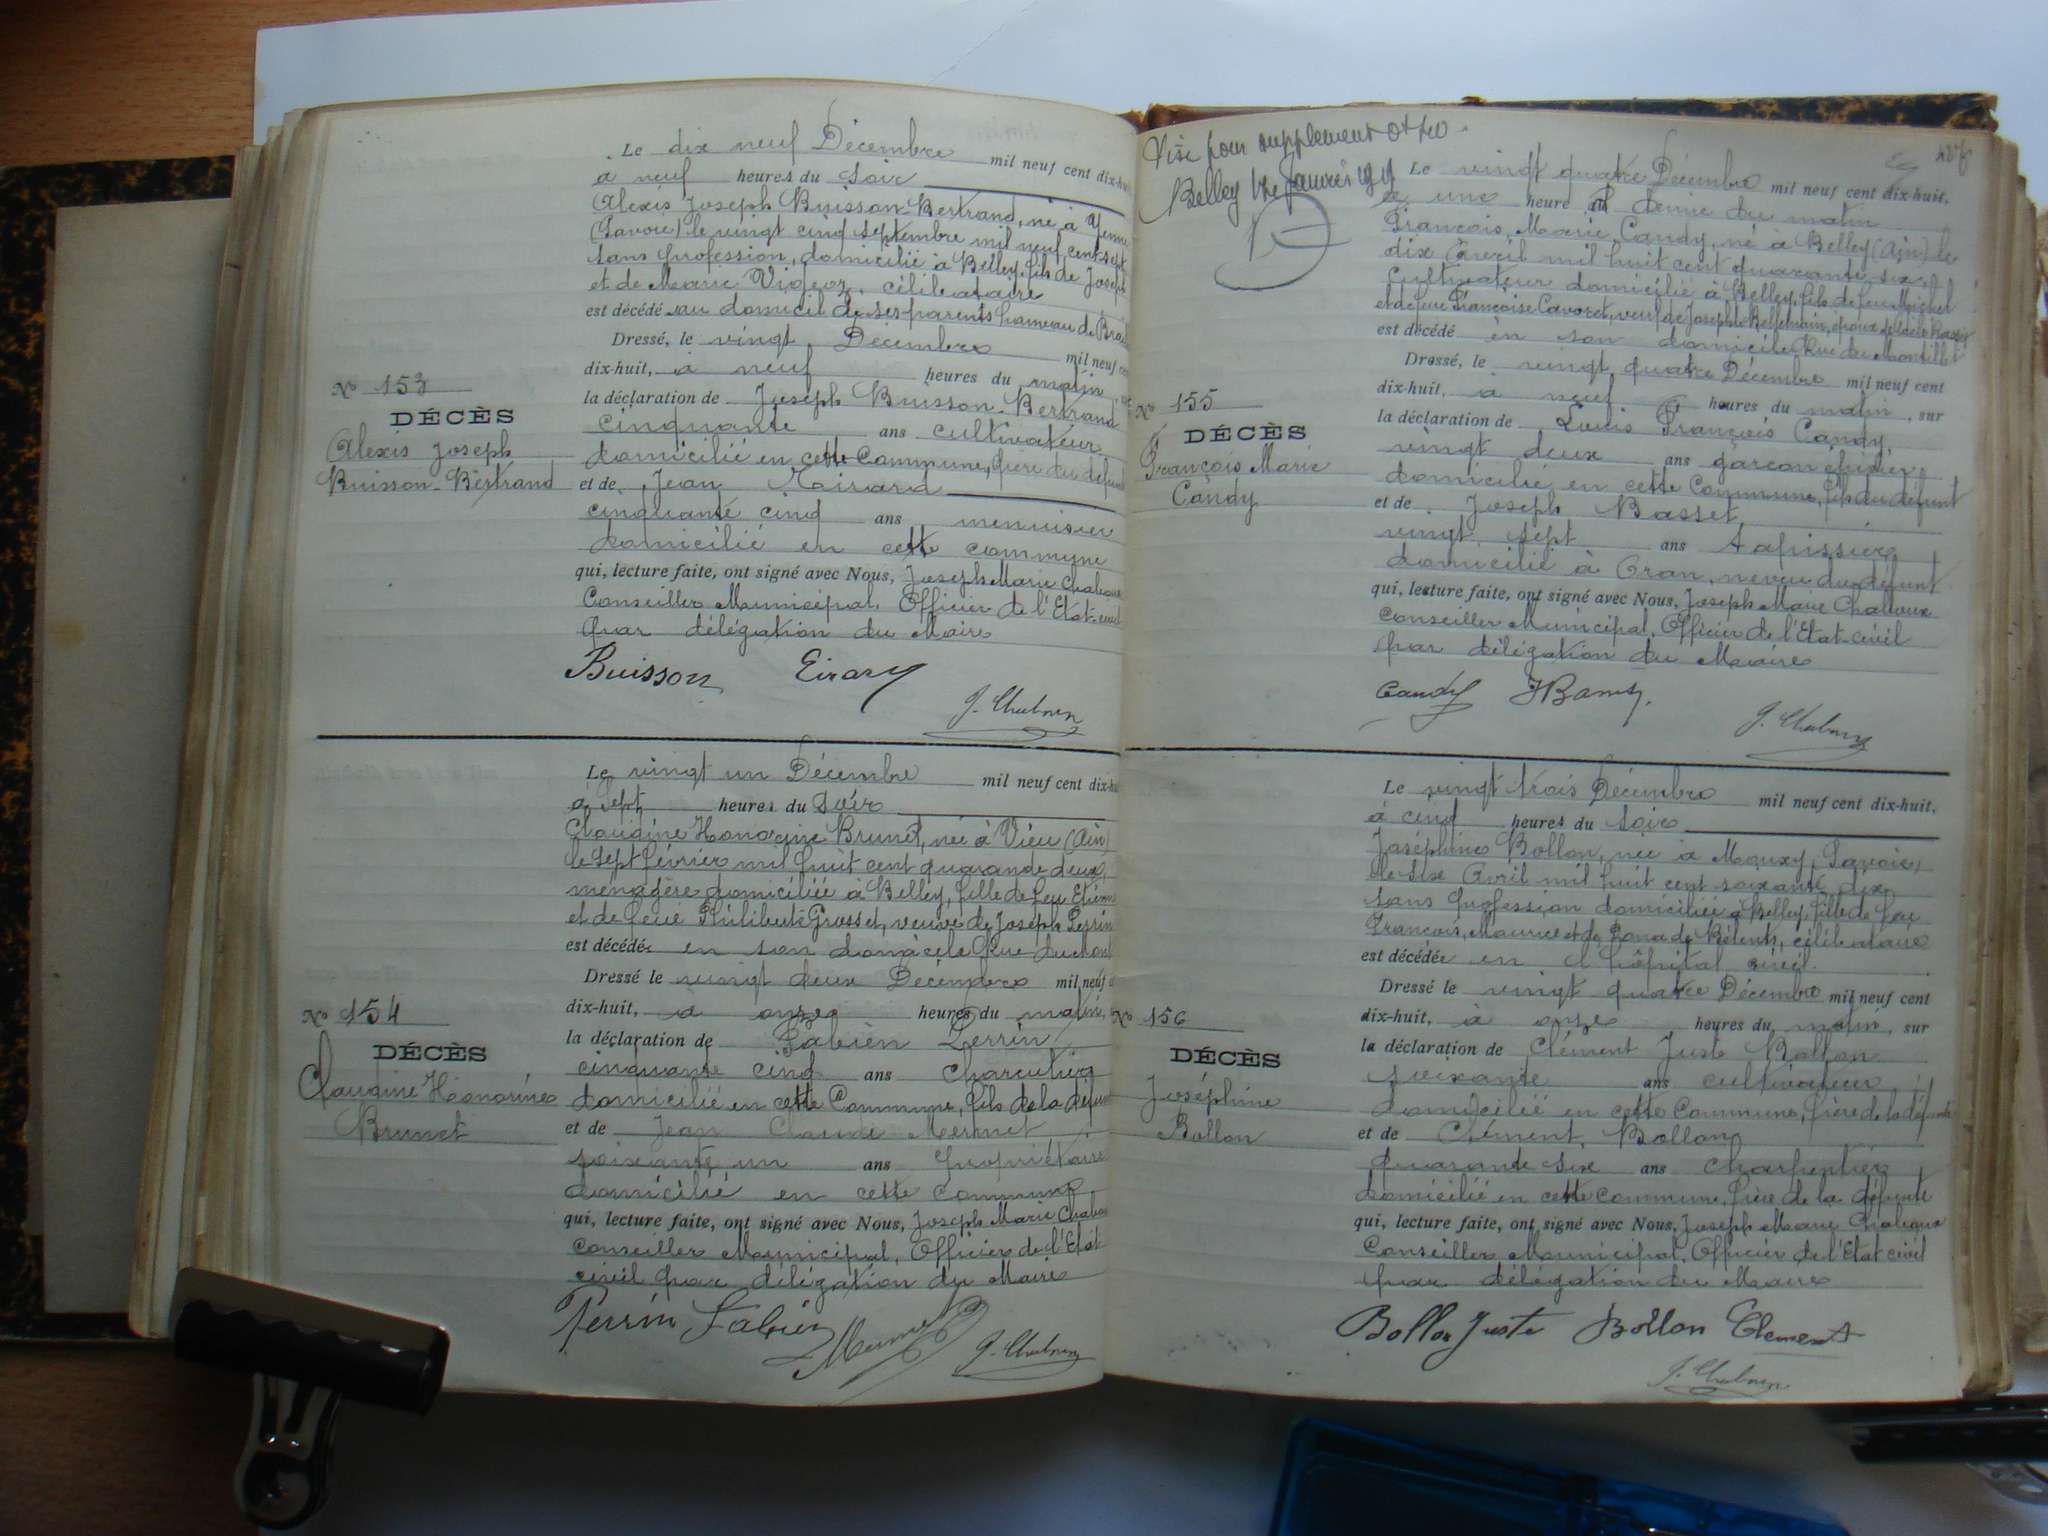 Le dix neuf Décembre mil neuf cent dix-hu
à neuf heures du soir
Alexis Joseph Buisson-Bertrand, né à Yenne
(Savoie) le vingt cinq septembre mil neuf cent sept
sans profession, domicilié à Belley, fils de Joseph
et de Marie célibataire
est décédé au domicil de ses parents hameau de
Dressé, le vingt Décembre mil neuf ce
dix-huit, à neuf heures du matin
la déclaration de Joseph Buisson-Bertrand
cinquante ans cultivateur
domicilié en cette Commune, père du défunt
et de Jean
cinquante cinq ans menuisier
domicilié en cette commune
qui, lecture faite, ont signé avec Nous, Joseph Marie
Conseiller Municipal, Officier de l'Etat-civil
par délégation du Maire
Nº 153
DÉCÈS
Alexis Joseph
Buisson-Bertrand
Buisson
Le vingt un Décembre mil neuf cent dix-hu
à sept heures du soir
Claudine Honorine Brunet, née à Vieu (Ain)
le sept février mil huit cent quarande deux,
menagère domiciliée à Belley, fille de feu
et de feue Philiberte Grosset, veuve de Joseph Perrin
est décédée en son domicile Rue
Dressé le vingt deux Décembre mil neuf
dix-huit, à onze heures du matin,
la déclaration de Fabien Perrin
cinquante cinq ans Charcutier
domicilié en cette Commune, fils de la
et de Jean Claude
soixante un ans propriétaire
domicilié en cette Commune
qui, lecture faite, ont signé avec Nous, Joseph Marie
Conseiller Municipal, Officier de l'Etat
civil par délégation du Maire
Nº 154
DÉCÈS
Claudine Honorine
Brunet
Perrin Fabien
Visé pour supplement
Belley
Le vingt quatre Décembre mil neuf cent dix-huit,
à une heure demie du matin
François Marie Candy, né à Belley (Ain) le
dix Avril mil huit cent quarante six,
Cultivateur domicilié à Belley, fils de feu Michel
et de feue Françoise Cavoret, veuf de Josephte époux de
est décédé en son domicile Rue du
Dressé, le vingt quatre Décembre mil neuf cent
dix-huit, à neuf heures du matin, sur
la déclaration de Louis François Candy
vingt deux ans garçon épicier
domicilié en cette Commune, fils du défunt
et de Joseph Basset
vingt sept ans tapissier
domicilié à Oran, neveu du défunt
qui, lecture faite, ont signé avec Nous, Joseph Marie
Conseiller Municipal, Officier de l'Etat-civil
par délégation du Maire
Nº 155
DÉCÈS
François Marie
Candy
Candy
Le vingt trois Décembre mil neuf cent dix-huit,
à cinq heures du soir
Joséphine Bollon, née à Mouxy, Savoie,
le six Avril mil huit cent soixante dix
sans profession domiciliée à Belley, fille de feu
François, Maurice et de célibataire
est décédée en l'hôpital civil.
Dressé le vingt quatre Décembre mil neuf cent
dix-huit, à onze heures du matin, sur
la déclaration de Clément Juste Bollon
soixante ans cultivateur
domicilié en cette Commune, frère de la défunte
et de Clément Bollon
quarante six ans charpentier
domicilié en cette Commune, frère de la défunte
qui, lecture faite, ont signé avec Nous, Joseph Marie
Conseiller Municipal, Officier de l'Etat civil
par délégation du Maire
Nº 156
DÉCÈS
Joséphine
Bollon
Bollon Juste Bollon Clement